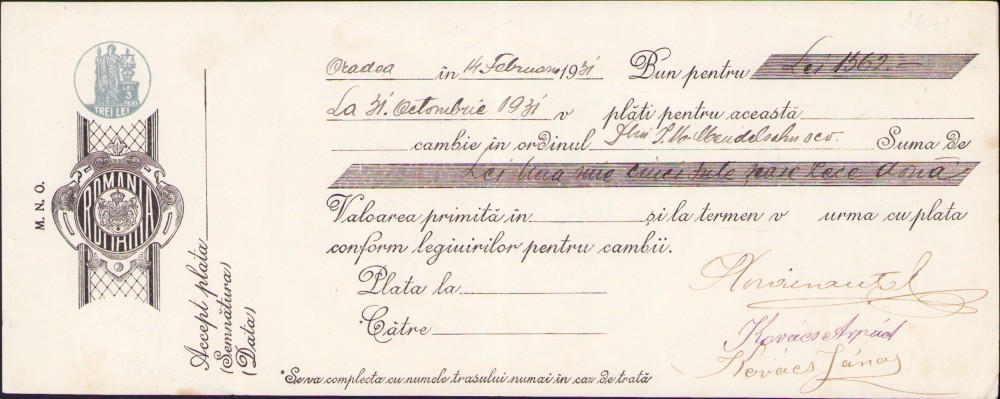 LEI
3
TREI LEI
M. N. O.
ROMANIA
Accept plata
(Semnătura)
(Data)
Oradea în 14 Februarie 1931 Bun pentru Lei 1562.-
La 31. Octombrie 1931 v plăti pentru această
cambie în ordinul Suma de
Lei una mie cinci sute șase zece două
Valoarea primită în și la termen v urma cu plata
conform legiuirilor pentru cambii.
Plata la
*Către
Kovács Árpád
Kovács János
*Se va complecta cu numele trasului numai în caz de trată